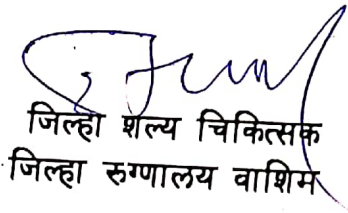 जिल्हा शल्य चिकित्सक
जिल्हा रुग्णालय वाशिम